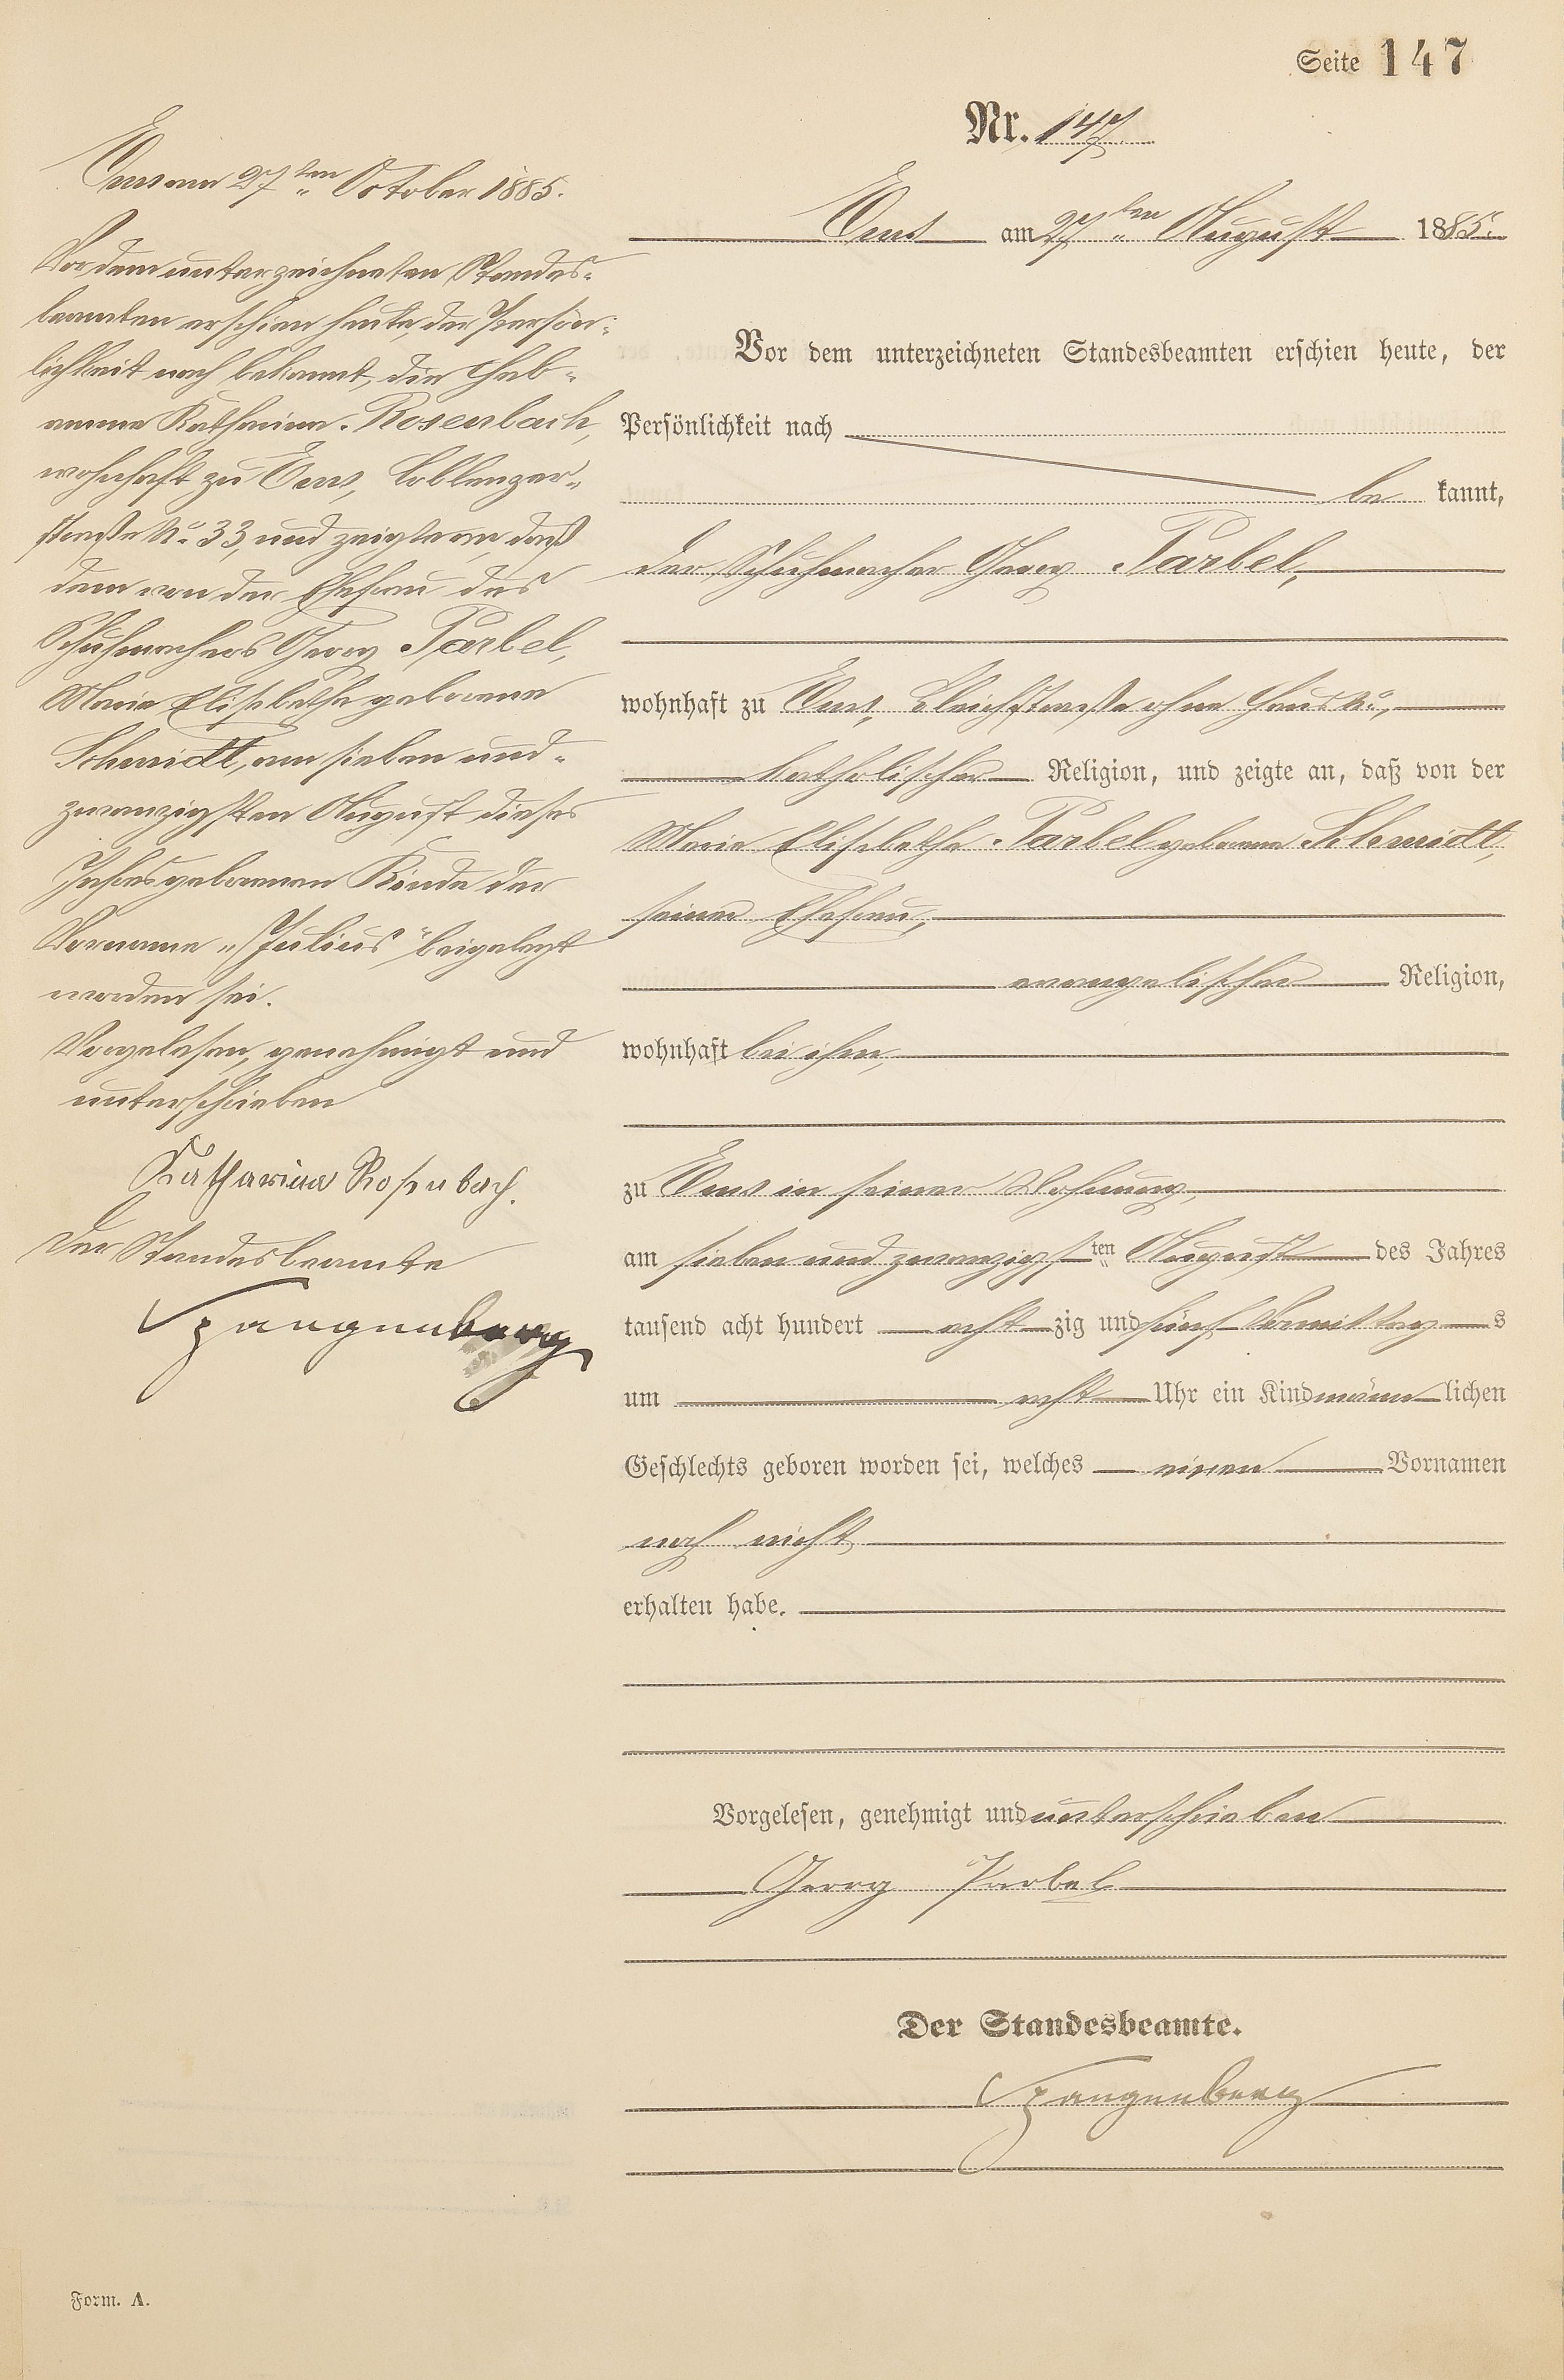 Seite 147
Nr. 147.
Ems am 27ten October 1885.
Vor dem unterzeichneten Standes-
beamten erschien heute, der Persön-
lichkeit nach bekannt, die Heb-
amme Katharina Rosenbach,
wohnhaft zu Ems, Coblenzer-
straße No. 33, und zeigte an, daß
dem von der Ehefrau des
Schuhmachers Georg Parbel,
Maria Elisabetha geborene
Schmidt, am sieben und-
zwanzigsten August dieses
Jahres geborenen Kinde der
Vorname „Julius" beigelegt
worden sei.
Vorgelesen, genehmigt und
unterschrieben
Katharina Rosenbach.
Der Standesbeamte
Spangenberg
Ems am 27ten August 1885.
Vor dem unterzeichneten Standesbeamten erschien heute, der
Persönlichkeit nach
be kannt,
der Schuhmacher Georg Parbel,
wohnhaft zu Ems, Bleichstraße ohne Haus No.,
katholischer Religion, und zeigte an, daß von der
Maria Elisabetha Parbel geborene Schmidt,
seiner Ehefrau,
evangelischer Religion,
wohnhaft bei ihm,
zu Ems in seiner Wohnung,
am sieben und zwanzigsten August des Jahres
tausend acht hundert acht zig und fünf Vormittag s
um acht Uhr ein Kind männ lichen
Geschlechts geboren worden sei, welches einen Vornamen
noch nicht
erhalten habe.
Vorgelesen, genehmigt und unterschrieben
Georg Parbel
Der Standesbeamte.
Spangenberg
Form. A.